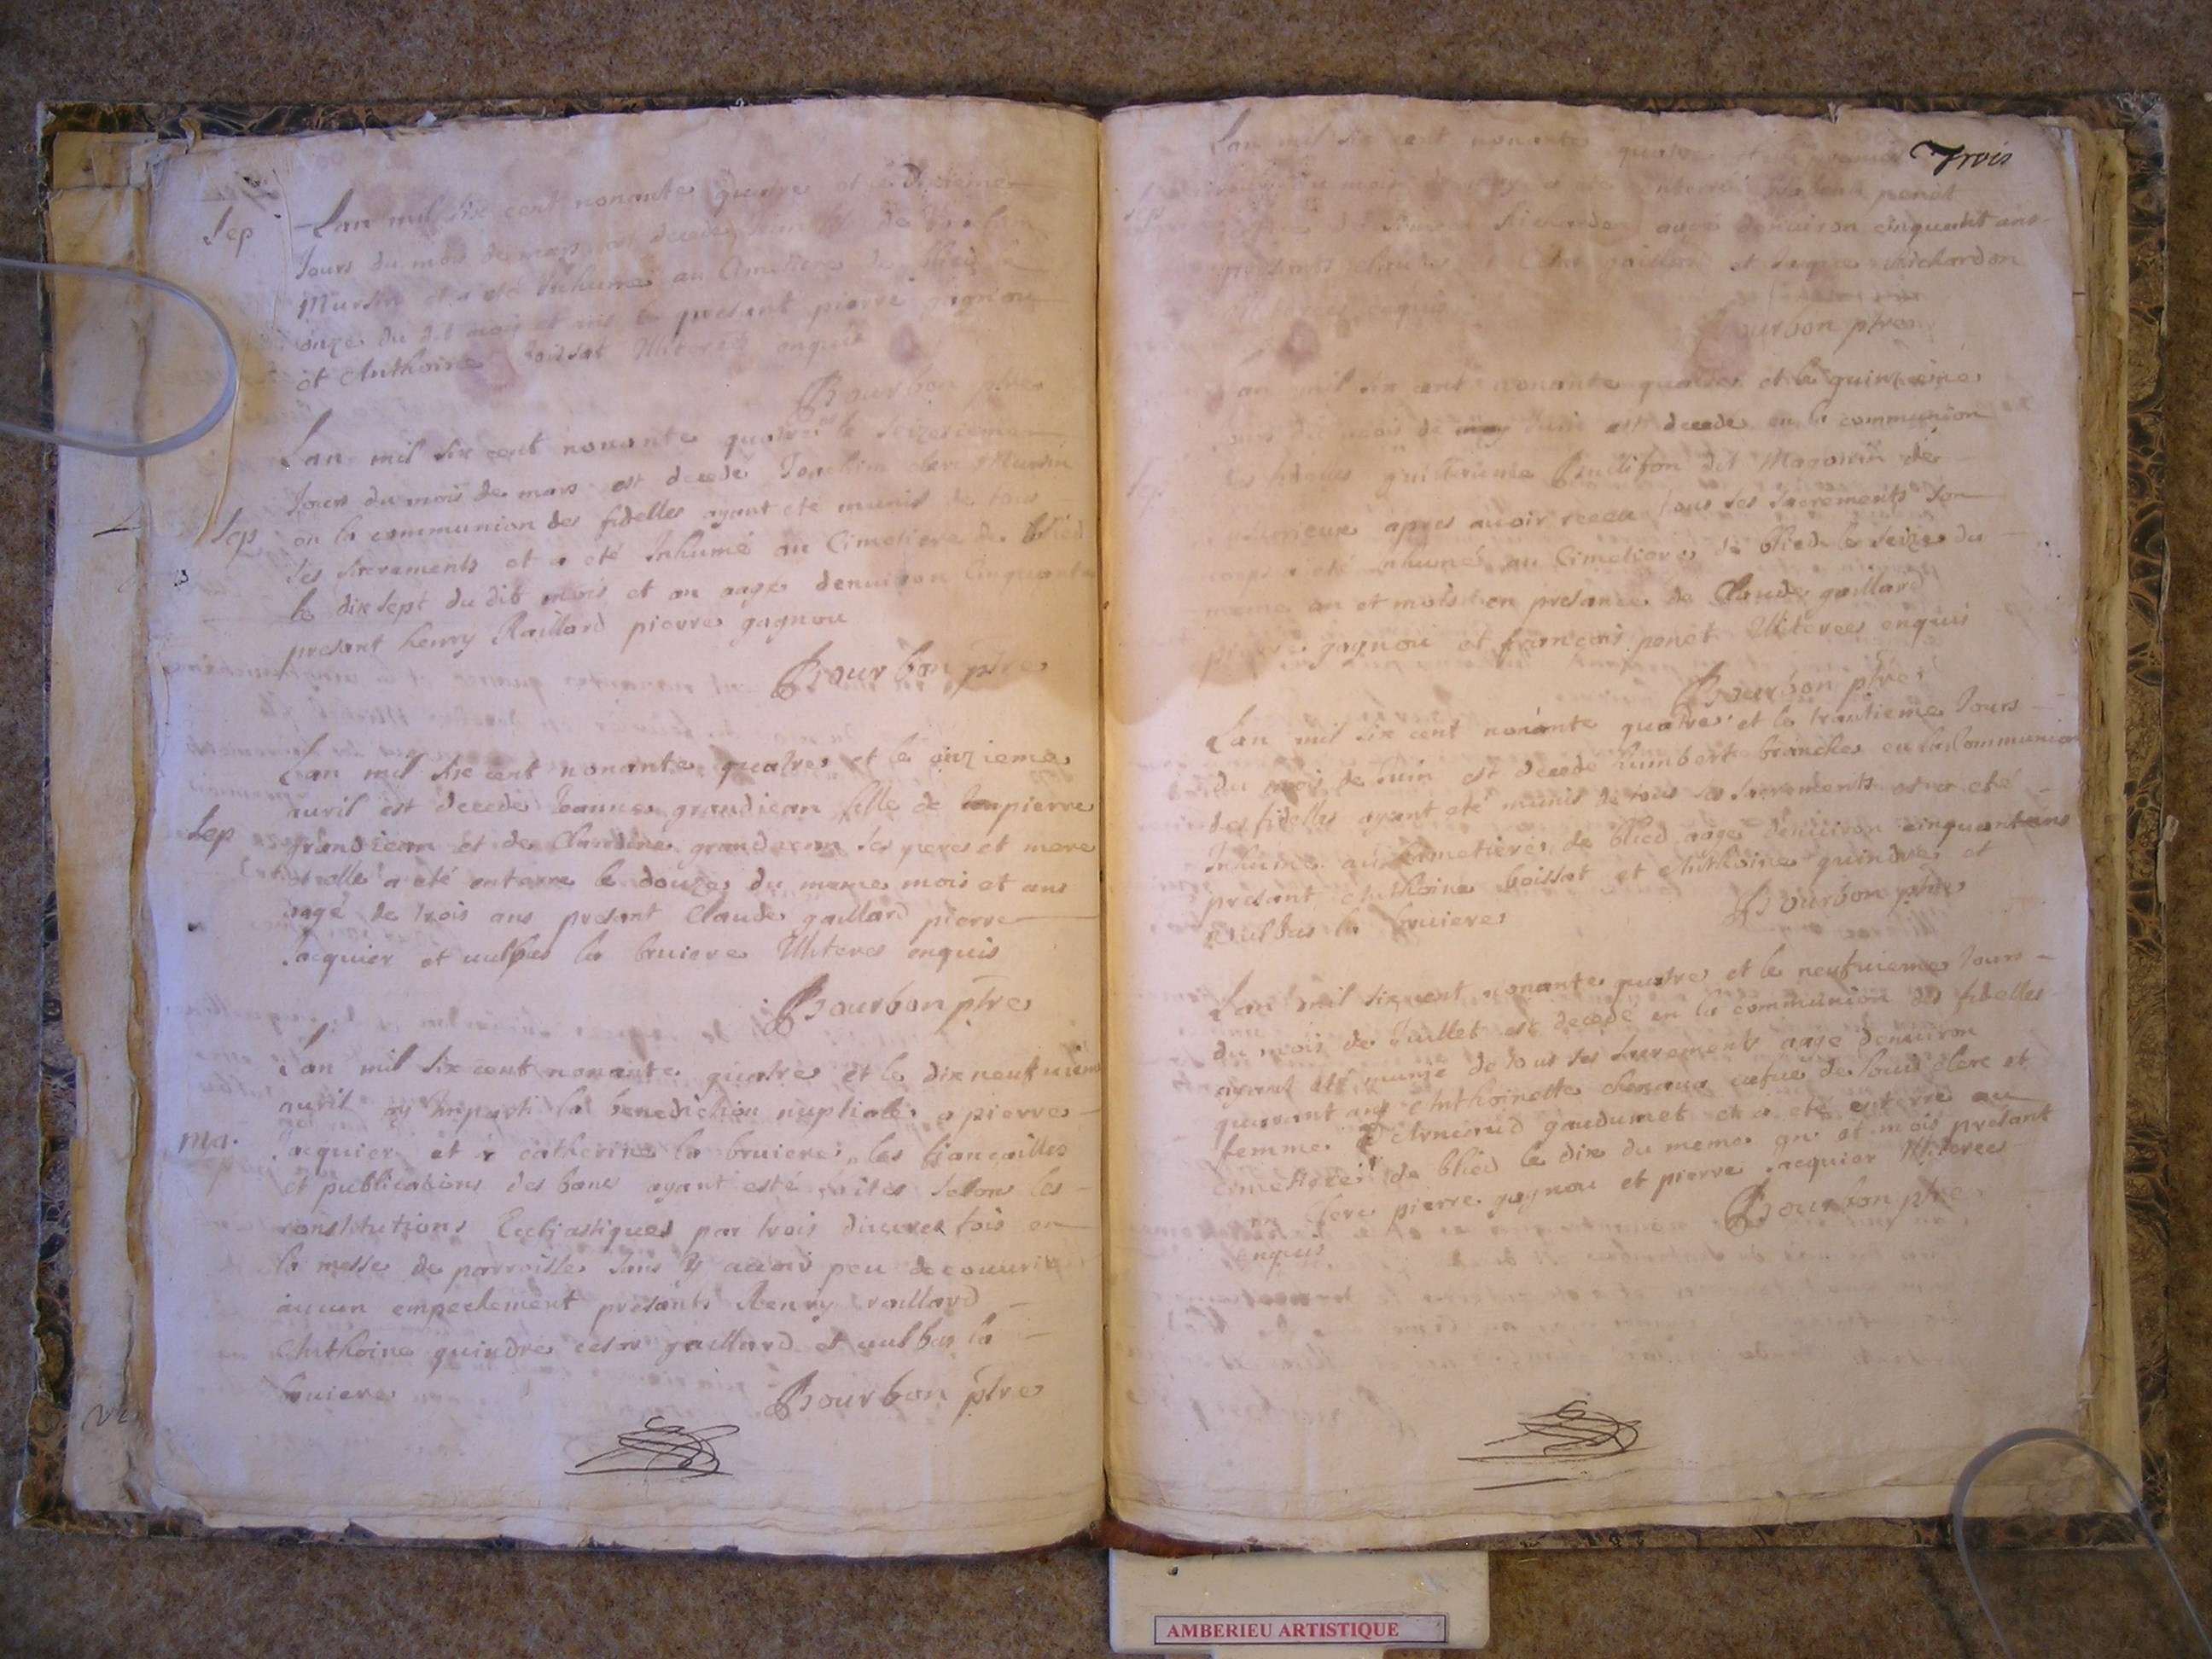 Sep
Lan mil six cent nonante quatre et le dixieme
Jours du mois de mars est decede de
Mursin et a eté Inhumé au Cimetiere de Blied le
onze du dit mois et an presant pierre gagnou
et Anthoine boissat Illiteres enquis
Bourbon ptre
Lan mil six cent nonante quatre et le seizeieme
Jours du mois de mars est decede Joachim clerc Mursin
Sep
en la communion des fidelles ayant eté munis de tous
ses sacrements et a eté Inhumé au Cimetiere de Blied
le dix sept du dit mois et an aage denuiron Cinquante
presant henry Raillard pierre gagnou
Bourbon ptre
Lan mil six cent nonante quatre et le onzieme
auril est decede Jeanne grandjean fille de Jeanpierre
Sep
grandjean et de Claudine grandjean ses peres et mere
et elle a eté enterre le douze du meme mois et ans
aagé de trois ans presant Claude gaillard pierre
Jacquier et uulbas la bruiere Illiteres enquis
Bourbon ptre
Lan mil six cent nonante quatre et le dix neufuieme
auril ay Imparti la benediction nuptiale a pierre
Ma.
Jacquier et a catherine la bruiere les fiancailles
et publications des bans ayant esté faites selon les
constitutions Ecclesiastiques par trois diuerses fois en
la messe de parroisse sans y auoir peu decouurir
aucun empechement presants henry raillard
Anthoine guindre cesar gaillard et uulbas la
bruiere
Bourbon ptre
Trois
Lan mil six cent nonante quatre et le
Sep
Jours du mois de may a eté enterré penet
de Richardon aage denuiron cinquante ans
presents claude et gaillard et Richardon
enquis
Bourbon ptre
Lan mil six cent nonante quatre et le quinzieme
Jours du mois de may Juin est decede en la communion
Sep
des fidelles dit de
apres auoir receu tous ses sacrements son
corps a eté Inhumé au Cimetiere de Blied le seize du
meme an et mois en presance de Claude gaillard
pierre gagnou et francois penet Illiterees enquis
Bourbon ptre
Lan mil six cent nonante quatre et le trantieme Jours
du mois de Juin est decede humbert branche en la Communion
des fidelles ayant eté munis de tous ses sacrements et a eté
Inhume au cimetiere de blied aage denuiron cinquante ans
presant Anthoine boissat et Anthoine guindre et
uulbas la bruiere
Bourbon ptre
Lan mil six cent nonante quatre et le neufuieme Jours
du mois de Juillet est decede en la communion des fidelles
ayant eté munie de tous ses sacrements aage denuiron
quarant ans Anthoinette uefue de clerc et
femme d'Arnaud gaudumet et a eté enterre au
cimetiere de blied le dix du meme an et mois presant
clerc pierre gagnou et pierre Jacquier Illiterees
enquis
Bourbon ptre
AMBERIEU ARTISTIQUE